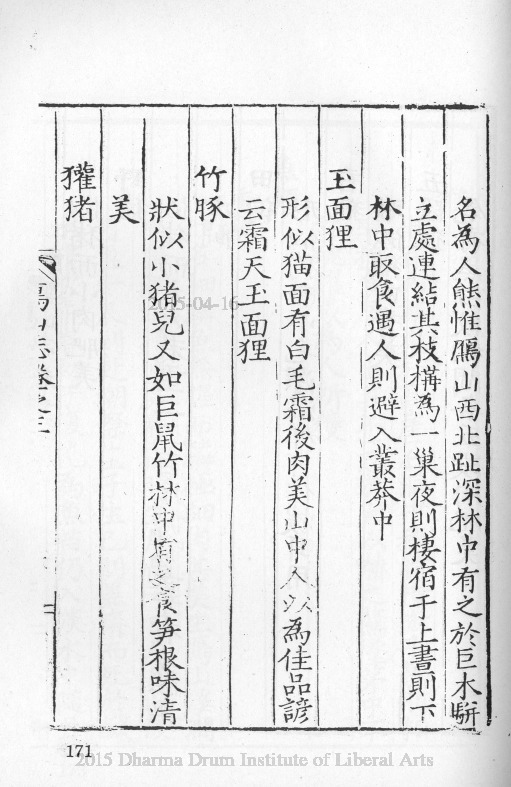 名為人熊惟鴈山西北趾深林中有之於巨木駢
立處連結其枝構為一巢夜則棲宿于上晝則下
林中取食遇人則避入叢莽中
玉面狸
形似猫面有白毛霜後肉美山中人以為佳品諺
云霜天玉面狸
竹豚
狀似小猪兒又如巨鼠竹林中有之食笋根味清
美
獾猪
山志卷之三
171
2015-04-16
2015 Dharma Drum Institute of Liberal Arts